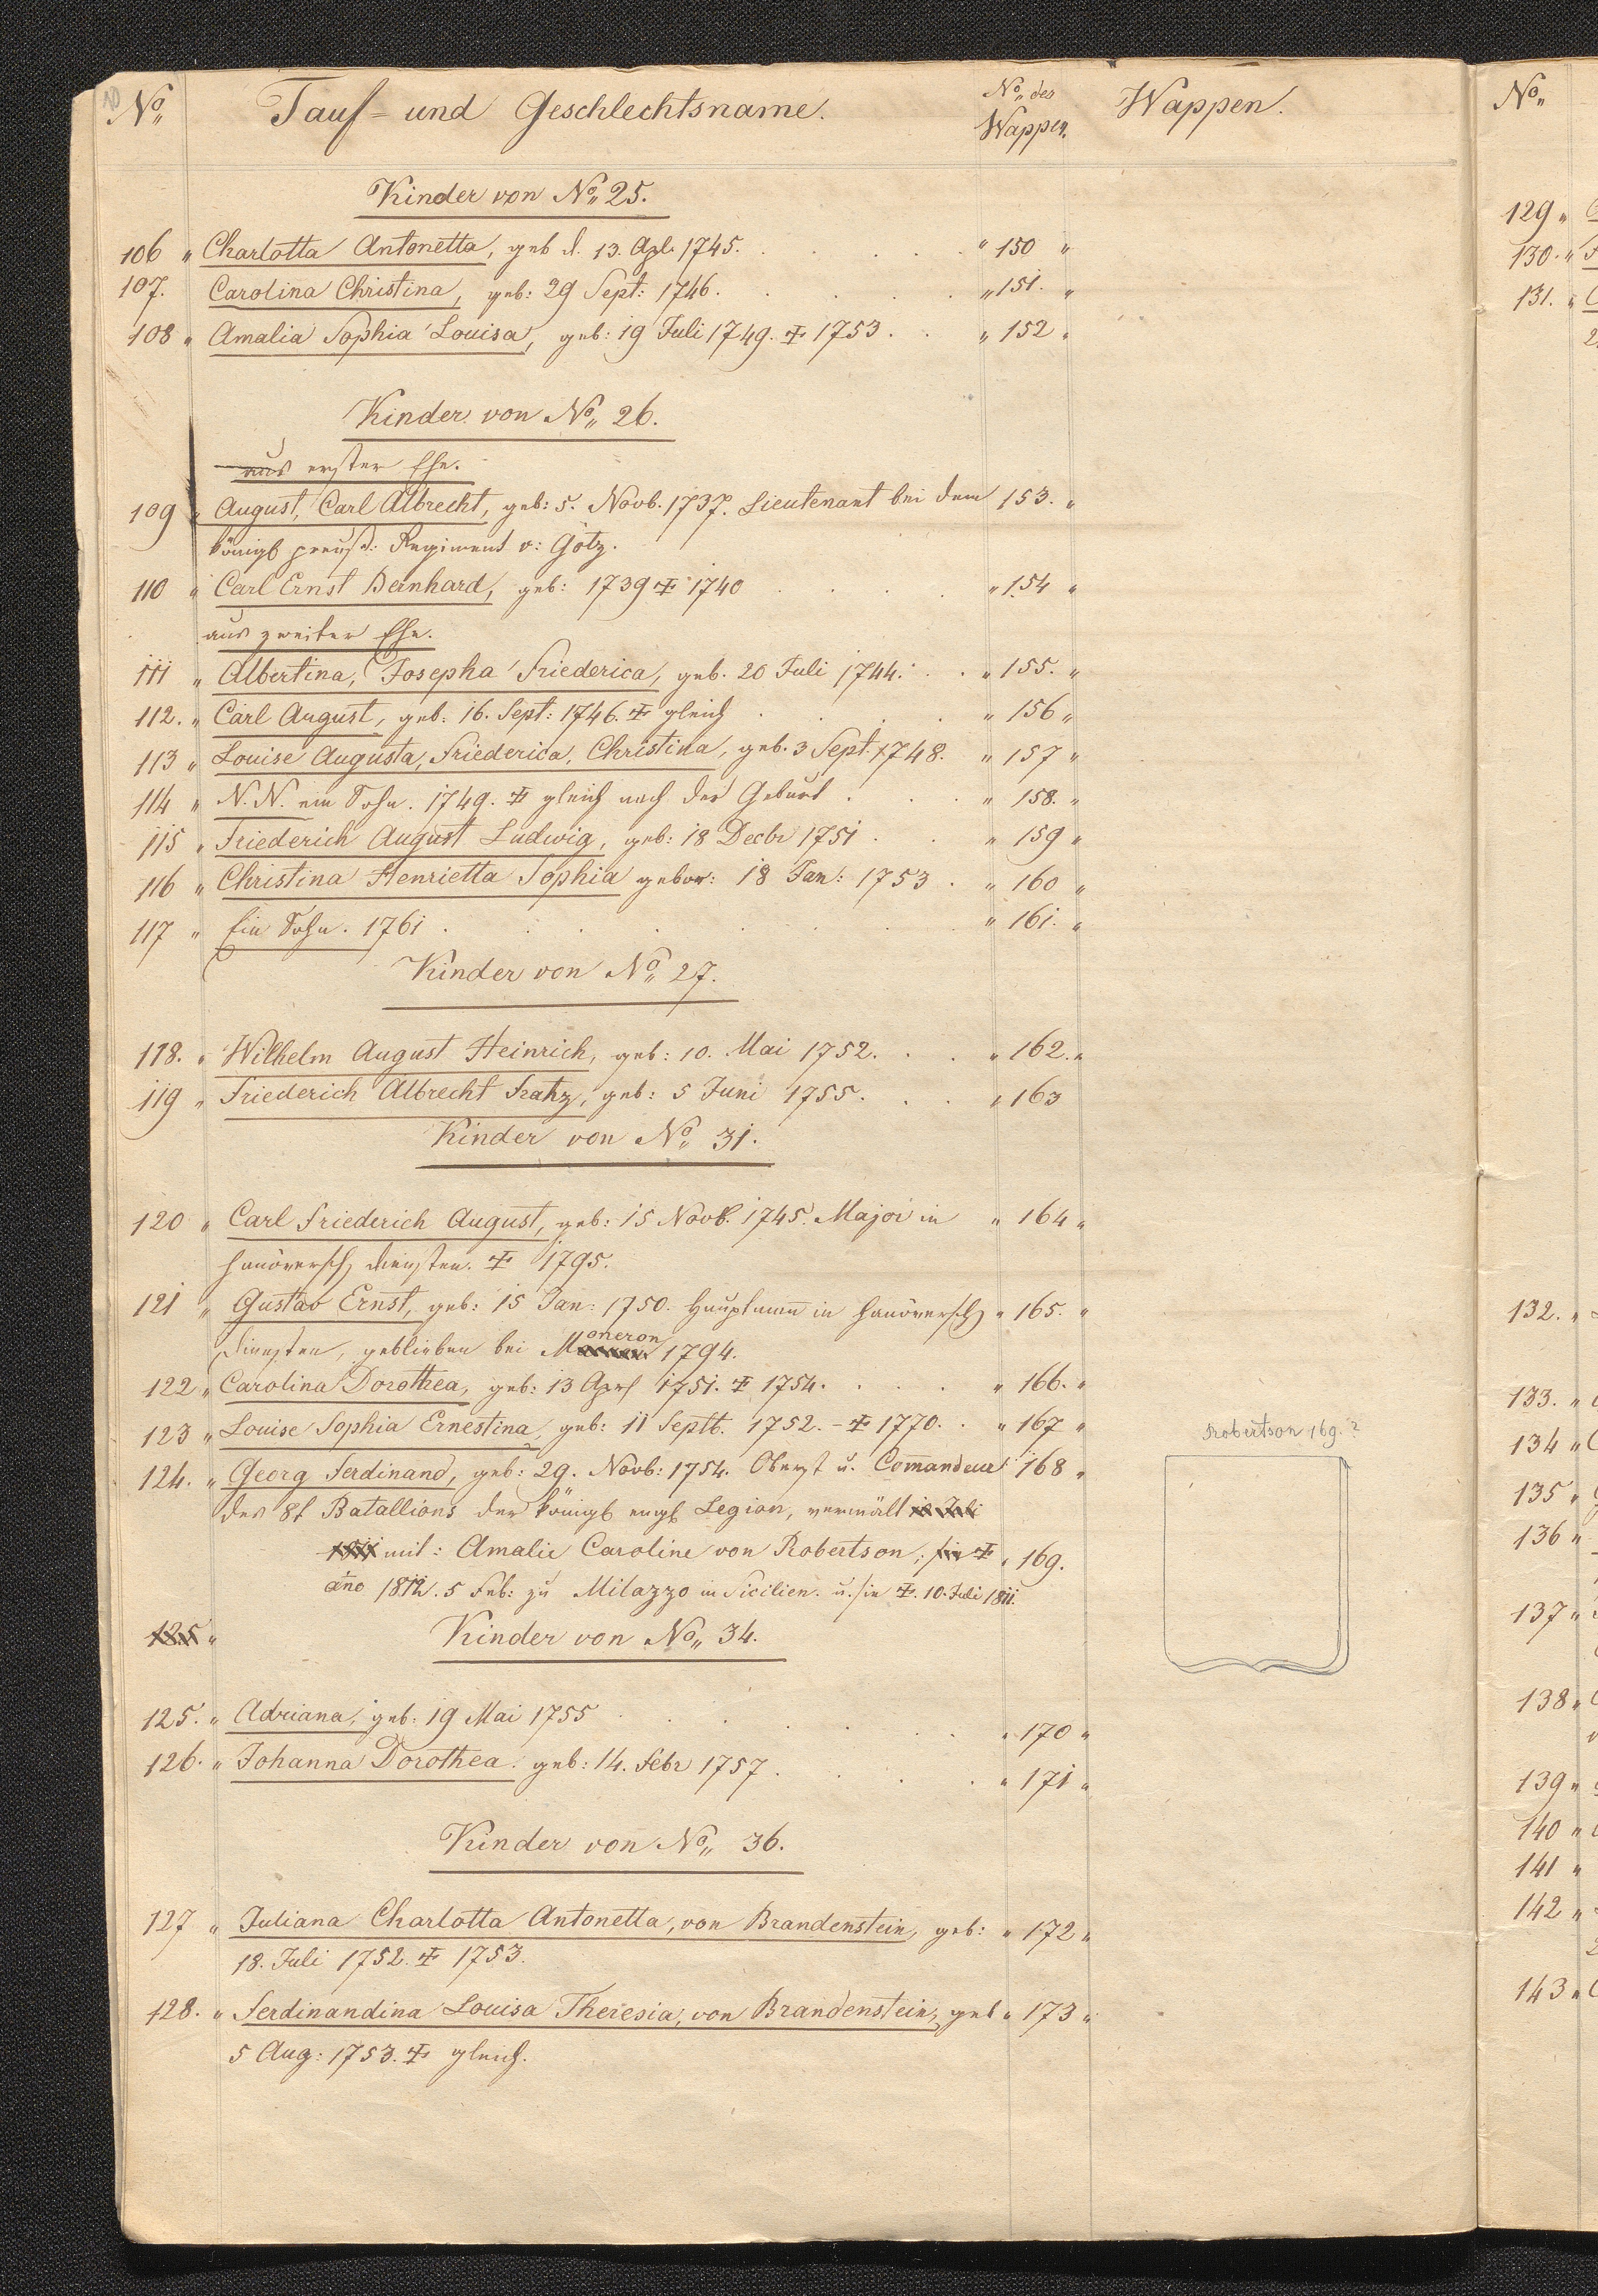 No. Tauf- und Geschlechtsname. No. der Wappen. Wappen.
Kinder von No. 25.
106 " Charlotta Antonetta, geb d. 13. Apl. 1745. " 150 "
107. Carolina Christina, geb: 29 Sept: 1746. " 151. "
108 " Amalia Sophia Louisa, geb: 19 Juli 1749. ☩ 1753. " 152 "
Kinder von No. 26.
aus erster Ehe.
109 " August, Carl Albrecht, geb: 5. Novb. 1737. Lieutenant bei dem 153. "
königl preuß: Regiment v: Götz.
110 " Carl Ernst Bernhard, geb: 1739 ☩ 1740 " 154 "
aus zweiter Ehe.
111 " Albertina, Josepha Friederica, geb. 20 Juli 1744. " 155. "
112. " Carl August, geb: 16. Sept: 1746. ☩ gleich " 156 "
113 " Louise Augusta, Friederica, Christina, geb. 3 Sept. 1748. " 157 "
114 " N. N. ein Sohn. 1749. ☩ gleich nach der Geburt. " 158. "
115 " Friederich August Ludwig, geb: 18 Decbr 1751. " 159 "
116 " Christina Henrietta Sophia gebor: 18 Jan: 1753. " 160 "
117 " Ein Sohn. 1761. " 161. "
Kinder von No. 27.
118. " Wilhelm August Heinrich, geb: 10. Mai 1752. " 162. "
119 " Friederich Albrecht Fratz, geb: 5 Juni 1755. " 163
Kinder von No. 31.
120 " Carl Friederich August, geb: 15 Novb. 1745. Major in " 164 "
hanöversch diensten. ☩ 1795.
121 " Gustav Ernst, geb: 15 Jan: 1750. Hauptmann in hanöversch " 165. "
Diensten, geblieben bei Moneron 1794.
122 " Carolina Dorothea, geb: 13 Aprl 1751. ☩ 1754. " 166. "
123 " Louise Sophia Ernestina, geb: 11 Septb. 1752. - ☩ 1770. " 167 "
124. " Georg Ferdinand, geb: 29. Novb: 1754. Oberst u. Comandeur 168 "
des 8t Batallions der königl engl Legion, vermält
mit: Amalie Caroline von Robertson; ☩ " 169.
año 1812. 5 Feb: zu Milazzo in Sicilien. u. sie ☩. 10. Juli 1811.
Robertson 169.?
125 "
Kinder von No. 34.
125. " Adriana, geb: 19 Mai 1755 " 170 "
126. " Johanna Dorothea. geb: 14. Febr 1757. " 171 "
Kinder von No. 36.
127 " Juliana Charlotta Antonetta, von Brandenstein, geb: " 172 "
18. Juli 1752. ☩ 1753.
128. " Ferdinandina Louisa Theresia, von Brandenstein, geb " 173 "
5 Aug: 1753. ☩ gleich.
No.
129 "
130. "
131. "
132. "
133. "
134 "
135 "
136 "
137 "
138 "
139 "
140 "
141 "
142 "
143 "